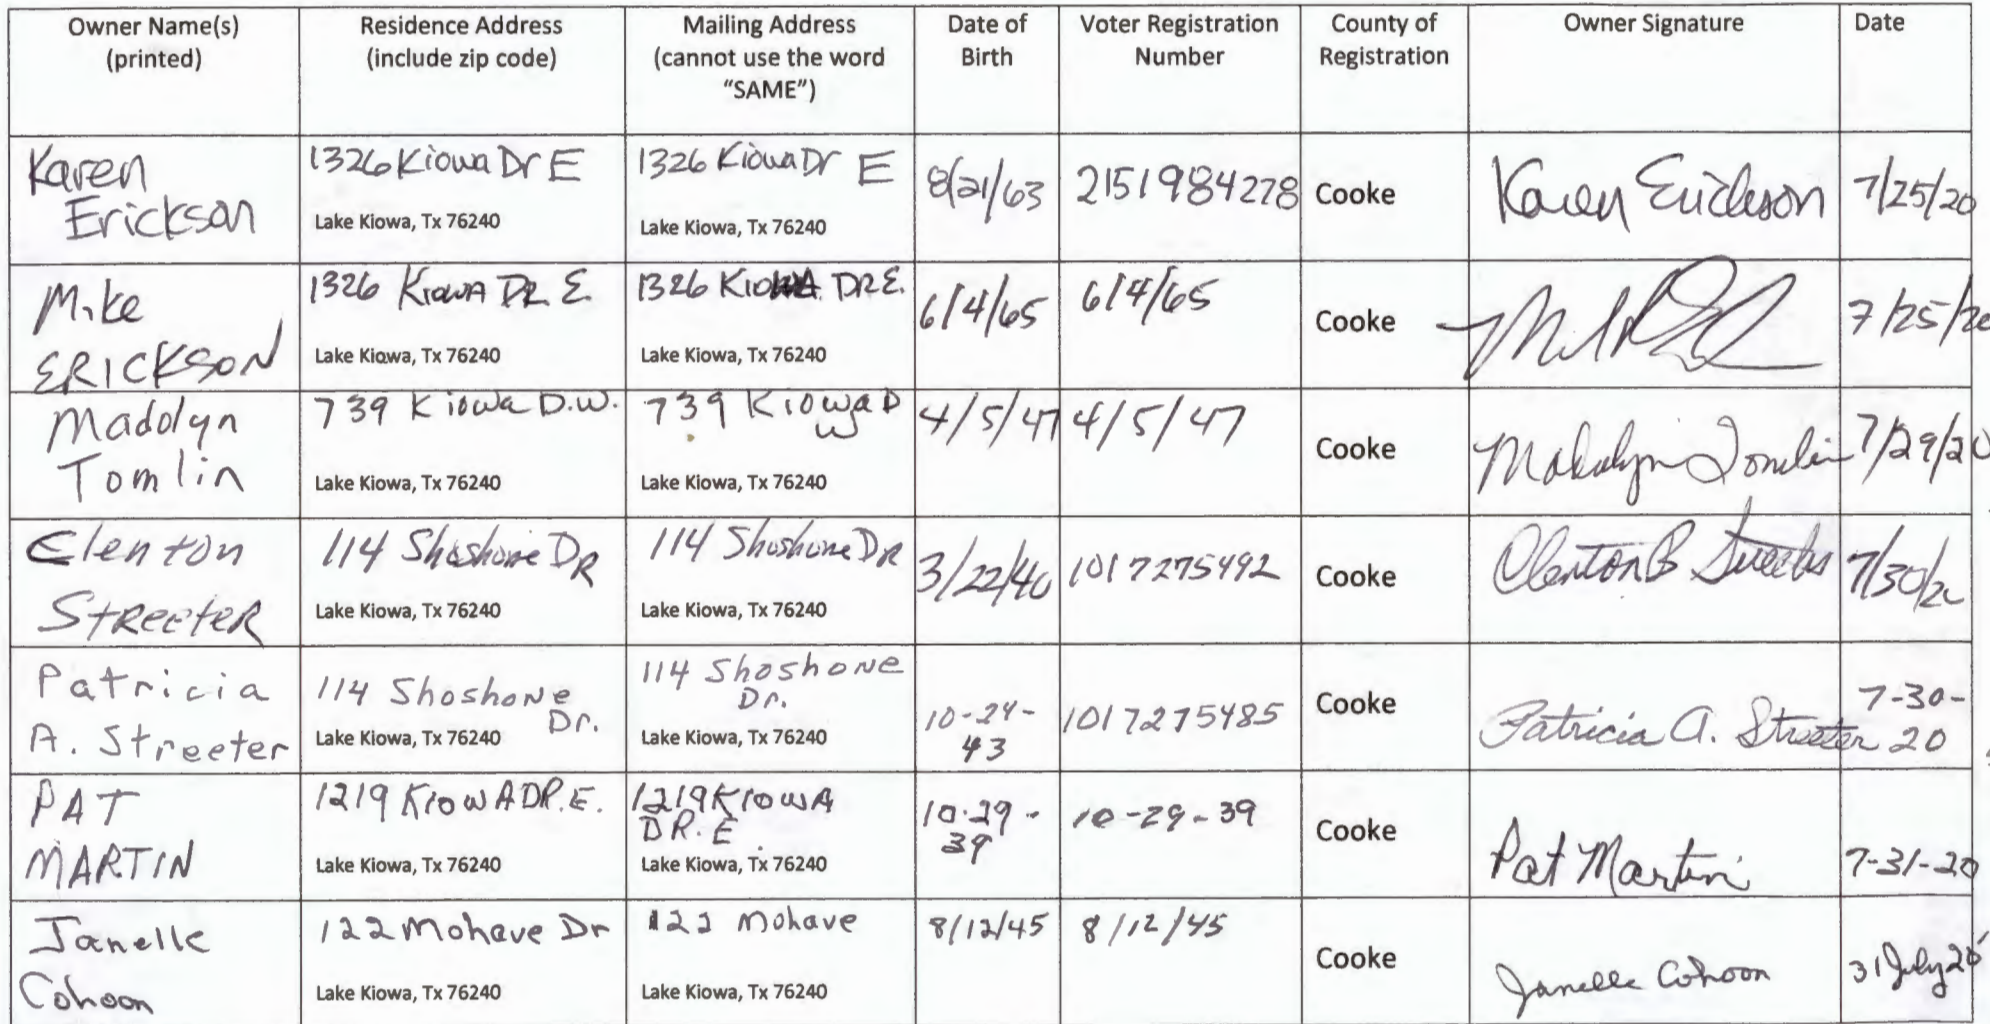 Owner Name(s) (printed) | Residence Address (include zip code) | Mailing Address (cannot use the word "SAME") | Date of Birth | Voter Registration Number | County of Registration | Owner Signature | Date
Karen Erickson | 1326 Kiowa Dr E Lake Kiowa, Tx 76240 | 1326 Kiowa Dr E Lake Kiowa, Tx 76240 | 8/21/63 | 2151984278 | Cooke | Karen Erickson | 7/25/20
Mike ERICKSON | 1326 KIOWA DR E. Lake Kiowa, Tx 76240 | 1326 KIOWA DR E. Lake Kiowa, Tx 76240 | 6/4/65 | 6/4/65 | Cooke | 7/25/20
Madolyn Tomlin | 739 Kiowa D.W. Lake Kiowa, Tx 76240 | 739 Kiowa D W Lake Kiowa, Tx 76240 | 4/5/47 | 4/5/47 | Cooke | Madolyn Tomlin | 7/29/20
Clenton STREETER | 114 Shoshone DR Lake Kiowa, Tx 76240 | 114 Shoshone DR Lake Kiowa, Tx 76240 | 3/22/40 | 1017275492 | Cooke | Clenton B Streeter | 7/30/20
Patricia A. Streeter | 114 Shoshone Dr. Lake Kiowa, Tx 76240 | 114 Shoshone Dr. Lake Kiowa, Tx 76240 | 10-24-43 | 1017275485 | Cooke | Patricia A. Streeter | 7-30-20
PAT MARTIN | 1219 KIOWA DR. E. Lake Kiowa, Tx 76240 | 1219 KIOWA DR. E. Lake Kiowa, Tx 76240 | 10-29-39 | 10-29-39 | Cooke | Pat Martin | 7-31-20
Janelle Cohoon | 122 Mohave Dr Lake Kiowa, Tx 76240 | 122 Mohave Lake Kiowa, Tx 76240 | 8/12/45 | 8/12/45 | Cooke | Janelle Cohoon | 31 July 20